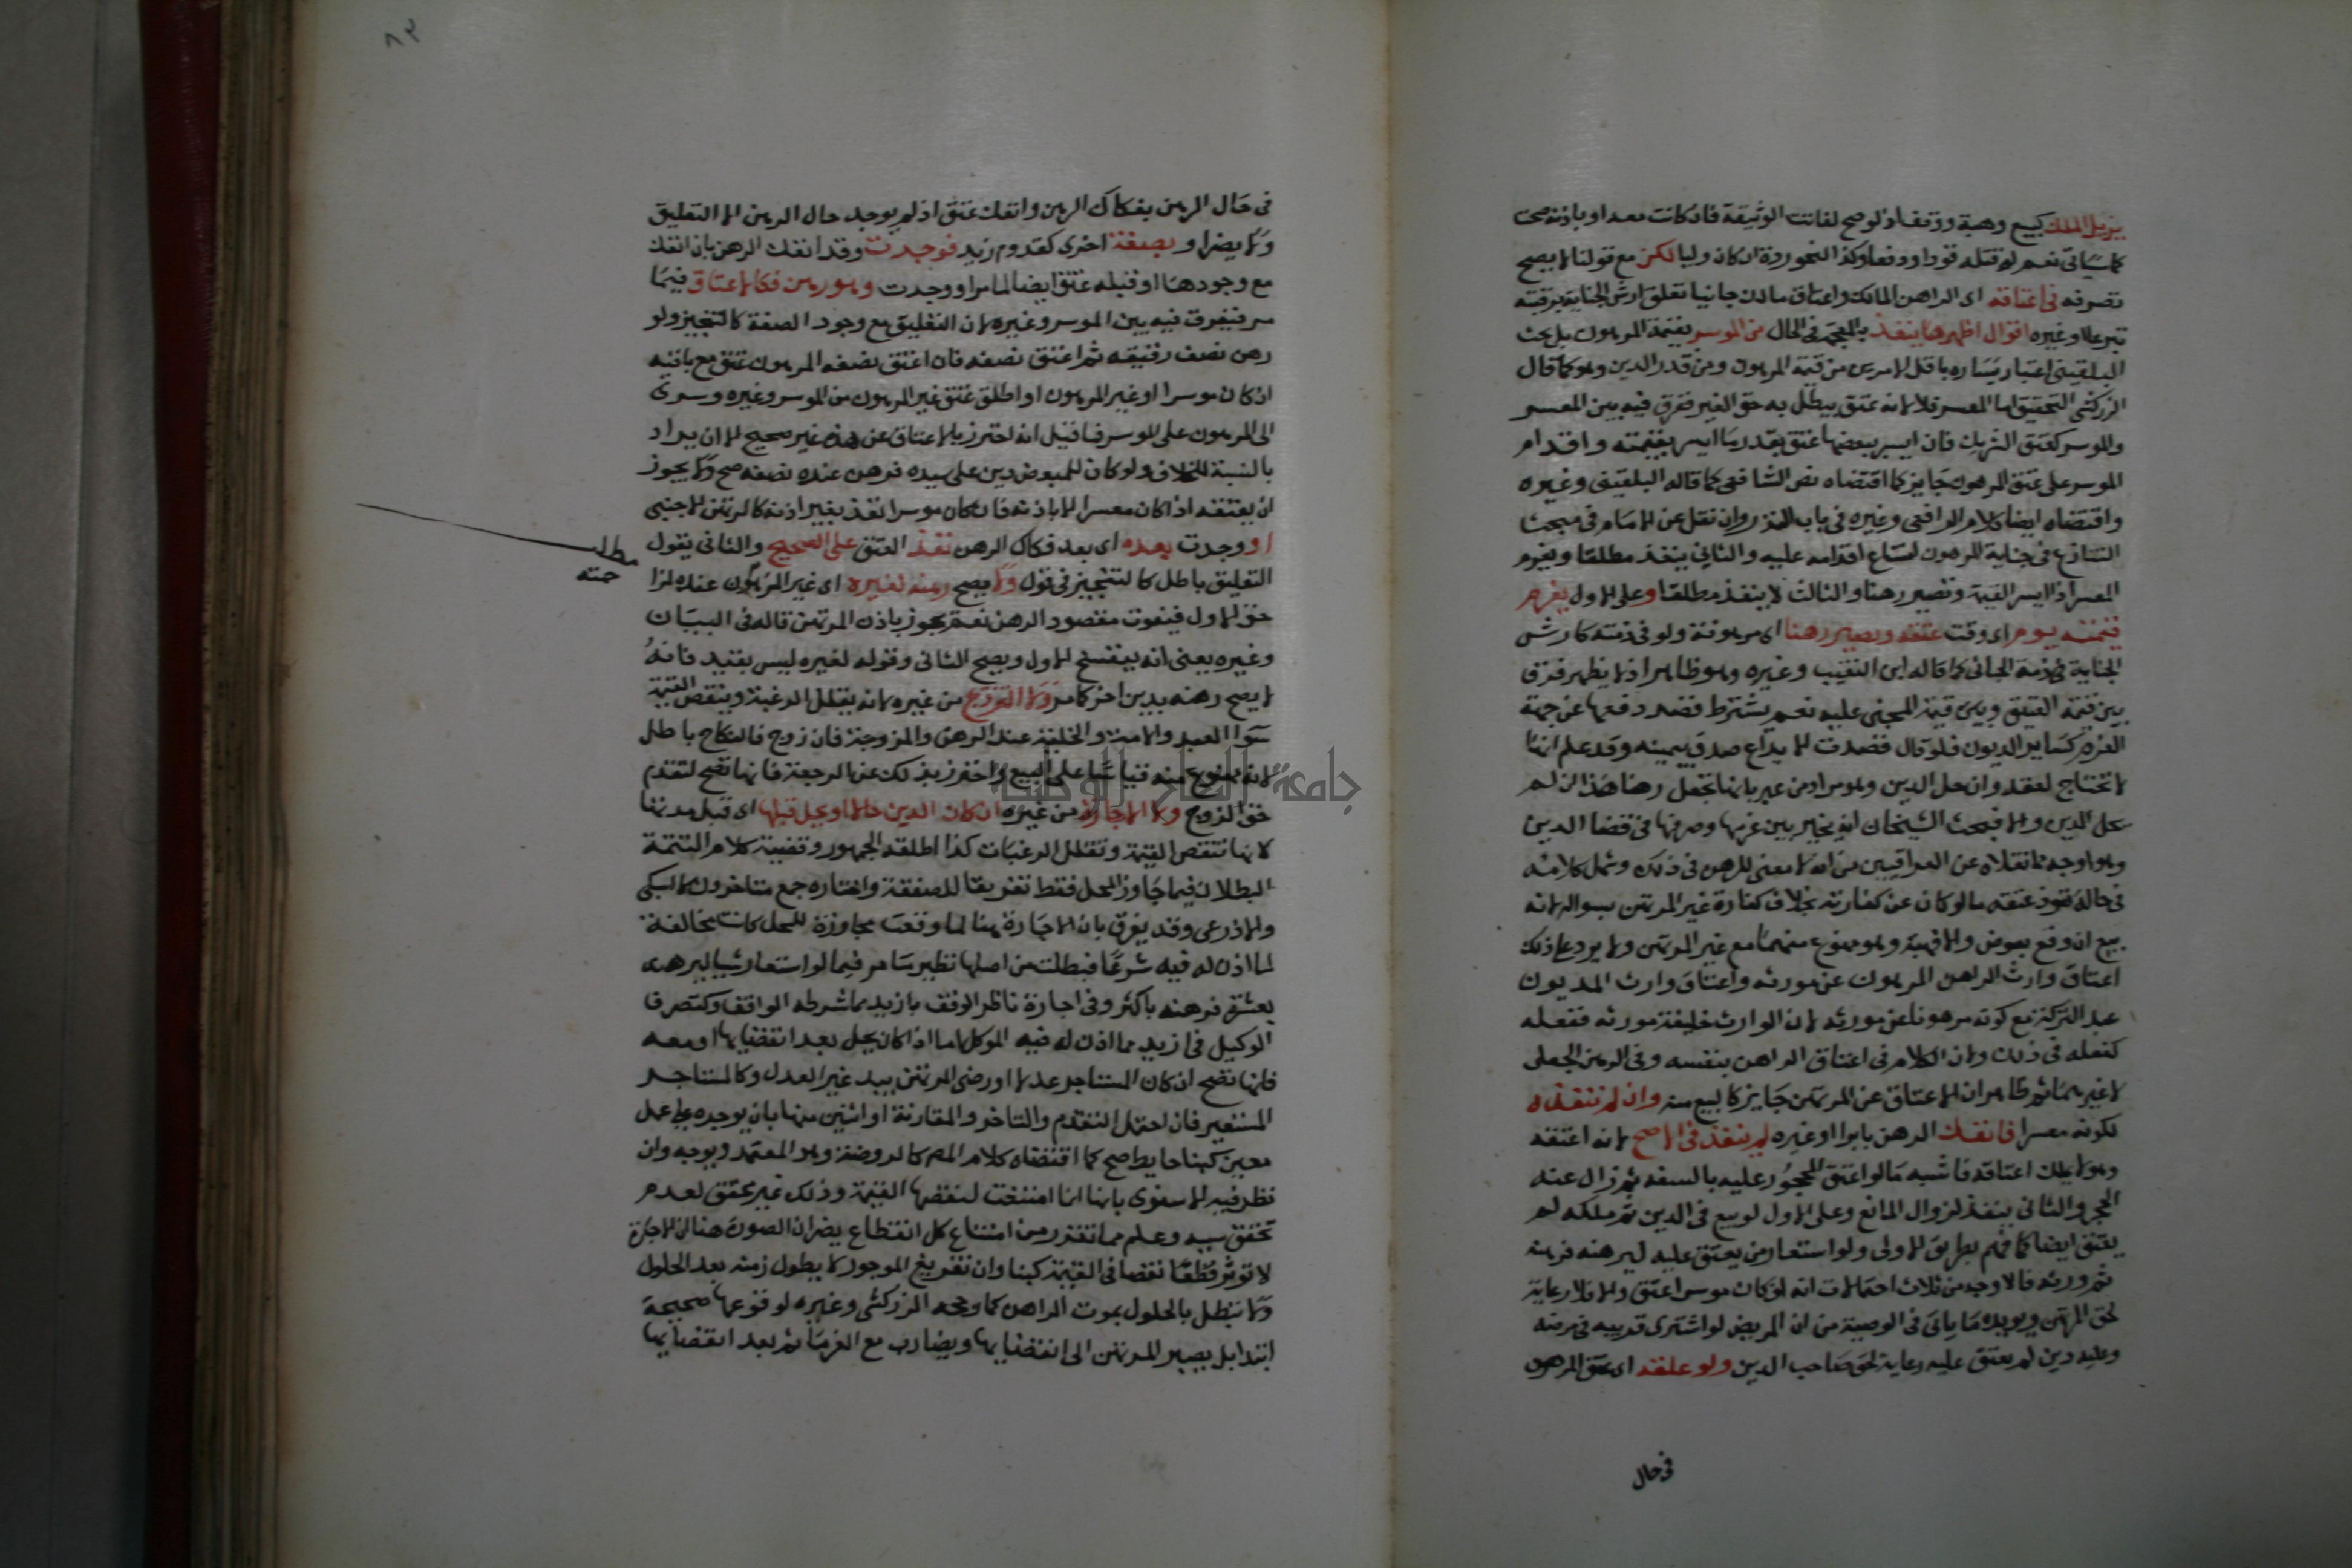 يزيل الملك كبيع وهبة ووقف اذ لو صح لفاتت الوثيقة فان كانت معه او باذنه صحت
كما سيأتي نعم له قتله قودا ودفعا وكذا لنحو ردة ان كان واليا لكن مع قولنا لا يصح
تصرفه في اعتاقه اى الراهن المالك واعتاق مالك جانيا تعلق ارش الجناية برقبته
تبرعا او غيره اقوال اظهرها ينفذ بالمعجمة في الحال من الموسر بقيمة المرهون بل بحث
البلقيني اعتبار يساره باقل الامرين من قيمة المرهون ومن قدر الدين وهو كما قال
الزركشي التحقيق اما المعسر فلا لانه عتق يبطل به حق الغير ففرق فيه بين المعسر
والموسر كعتق الشريك فان ايسر ببعضها عتق بقدر ما ايسر بقيمته واقدام
الموسر على عتق المرهون جايز كما اقتضاه نص الشافعي كما قاله البلقيني وغيره
واقتضاه ايضا كلام الرافعي وغيره في باب النذر وان نقل عن الامام في مبحث
التنازع في جناية المرهون امتناع اقدامه عليه والثاني ينفذ مطلقا ويغرم
المعسر اذا ايسر القيمة وتصير رهنا والثالث لا ينفذ مطلقا وعلى الاول يغرم
قيمته يوم اى وقت عتقه ويصير رهنا اى مرهونة ولو في ذمته كارش
الجناية في ذمة الجاني كما قاله ابن النقيب وغيره وهو ظاهر اذ لا يظهر فرق
بين قيمة العتق وبين قيمة المجني عليه نعم يشترط قصد دفعها عن جهة
الغرم كساير الديون فلو قال قصدت الايداع صدق بيمينه وقد علم انها
لا تحتاج لعقد وان حل الدين وهو مراد من عبر بانها تجعل رهنا هذا ان لم
يحل الدين والا فبحث الشيخان انه يخير بين غرمها وصرفها في قضا الدين
وهو اوجه مما نقلاه عن العراقيين من انه لا معنى للرهن في ذلك وشمل كلامه
في حالة نفوذ عتقه ما لو كان عن كفارته بخلاف كفارة غير المرتهن بسواله لانه
بيع ان وقع بعوض والا فهبة وهو ممنوع منهما مع غير المرتهن ولا يرد على ذلك
اعتاق وارث الراهن المرهون عن مورثه واعتاق وارث المديون
عبد التركة مع كونه مرهونا عن مورثه لان الوارث خليفة مورثه ففعله
كفعله في ذلك ولان الكلام في اعتاق الراهن بنفسه وفي الرهن الجعلي
لا غيرهما ثم ظاهر ان الاعتاق عن المرتهن جايز كالبيع منه وان لم ننفذه
لكونه معسرا فانفك الرهن بابرا او غيره لم ينفذ في الاصح لانه اعتقه
وهو لا يملك اعتاقه فاشبه ما لو اعتق المحجور عليه بالسفه ثم زال عنه
الحجر والثاني ينفذ لزوال المانع وعلى الاول لو بيع في الدين ثم ملكه لم
يعتق ايضا كما فهم بطريق الاولى ولو استعار من يعتق عليه ليرهنه فرهنه
ثم ورثه فالاوجه من ثلاث احتمالات انه ان كان موسرا عتق والا فلا رعاية
لحق المرتهن ويويده ما ياتي في الوصية من ان المريض لو اشترى قريبه في مرضه
وعليه دين لم يعتق عليه رعاية لحق صاحب الدين ولو علقه اى عتق المرهون
في حال
في حال الرهن بفكاك الرهن وانفك عتق اذ لم يوجد حال الرهن الا التعليق
ولا يضر او بصفة اخرى كقدوم زيد فوجدت وقد انفك الرهن بان انفك
مع وجودها او قبله عتق ايضا لما مر او وجدت وهو رهن فكالاعتاق فيما
مر فيفرق فيه بين الموسر وغيره لان التعليق مع وجود الصفة كالتنجيز ولو
رهن نصف رقيقه ثم اعتق نصفه فان اعتق نصفه المرهون عتق مع باقيه
ان كان موسرا او غير المرهون او اطلق عتق غير المرهون من الموسر وغيره وسرى
الى المرهون على الموسر فما قيل انه احترز بالاعتاق عن هذه غير صحيح الا ان يراد
بالنسبة للخلاف ولو كان للمبعض دين على سيده فرهن عنده نصفه صح ولا يجوز
ان يعتقه اذا كان معسرا الا باذنه فان كان موسرا نفذ بغير اذنه كالمرتهن الاجنبي
او وجدت بعده اى بعد فكاك الرهن نفذ العتق على الصحيح والثاني يقول
مطلب
التعليق باطل كالتنجيز في قول ولا يصح رهنه لغيره اى غير المرهون عنده لزا
حق الاول فيفوت مقصود الرهن نعم يجوز باذن المرتهن قاله في البيان
وغيره يعني انه ينفسخ الاول ويصح الثاني وقوله لغيره ليس بقيد فانه
لا يصح رهنه بدين اخر كما مر ولا التزويج من غيره لانه يقلل الرغبة وينقص القيمة
سوا العبد والامة والخلية عند الرهن والمزوجة فان زوج فالنكاح باطل
لانه ممنوع منه قياسا على البيع واحترز بذلك عن الرجعة فانها تصح لتقدم
حق الزوج ولا الاجارة من غيره ان كان الدين حالا او يحل قبلها اى قبل مدتها
لانها تنقص القيمة وتقلل الرغبات كذا اطلقه الجمهور وقضية كلام التتمة
البطلان فيما جاوز المحل فقط تفريقا للصفقة واختاره جمع متاخرون كالسبكي
والاذرعي وقد يفرق بان الاجارة هنا لما وقعت مجاوزة للمحل كانت مخالفة
لما اذن له فيه شرعا فبطلت من اصلها نظير ما مر فيما لو استعار شيا ليرهنه
بعشرة فرهنه باكثر وفي اجارة ناظر الوقف بازيد مما شرطه الواقف وكتصرف
الوكيل في ازيد مما اذن له فيه الموكل اما اذا كان يحل بعد انقضايها او معه
فانها تصح ان كان المستاجر عدلا او رضى المرتهن بيد غير العدل وكالمستاجر
المستعير فان احتمل التقدم والتاخر والمقارنة او اثنين منها بان يوجره على عمل
معين كبنا حايط صح كما اقتضاه كلام المص كالروضة وهو المعتمد ويوجه وان
نظر فيه الاسنوى بانها انما امتنعت لنقصها القيمة وذلك غير محقق لعدم
تحقق سببه وعلم مما تقرر من امتناع كل انقطاع يضر ان الصورة هنا ان الاجارة
لا توثر قطعا نقصا في القيمة كبنا وان تفريغ الموجور لا يطول زمنه بعد الحلول
ولا تبطل بالحلول بموت الراهن كما رجحه الزركشي وغيره لوقوعها صحيحة
ابتدا بل يصير المرتهن الى انقضايها ويضارب مع الغرما ثم بعد انقضايها
جامعة النجاح الوطنية